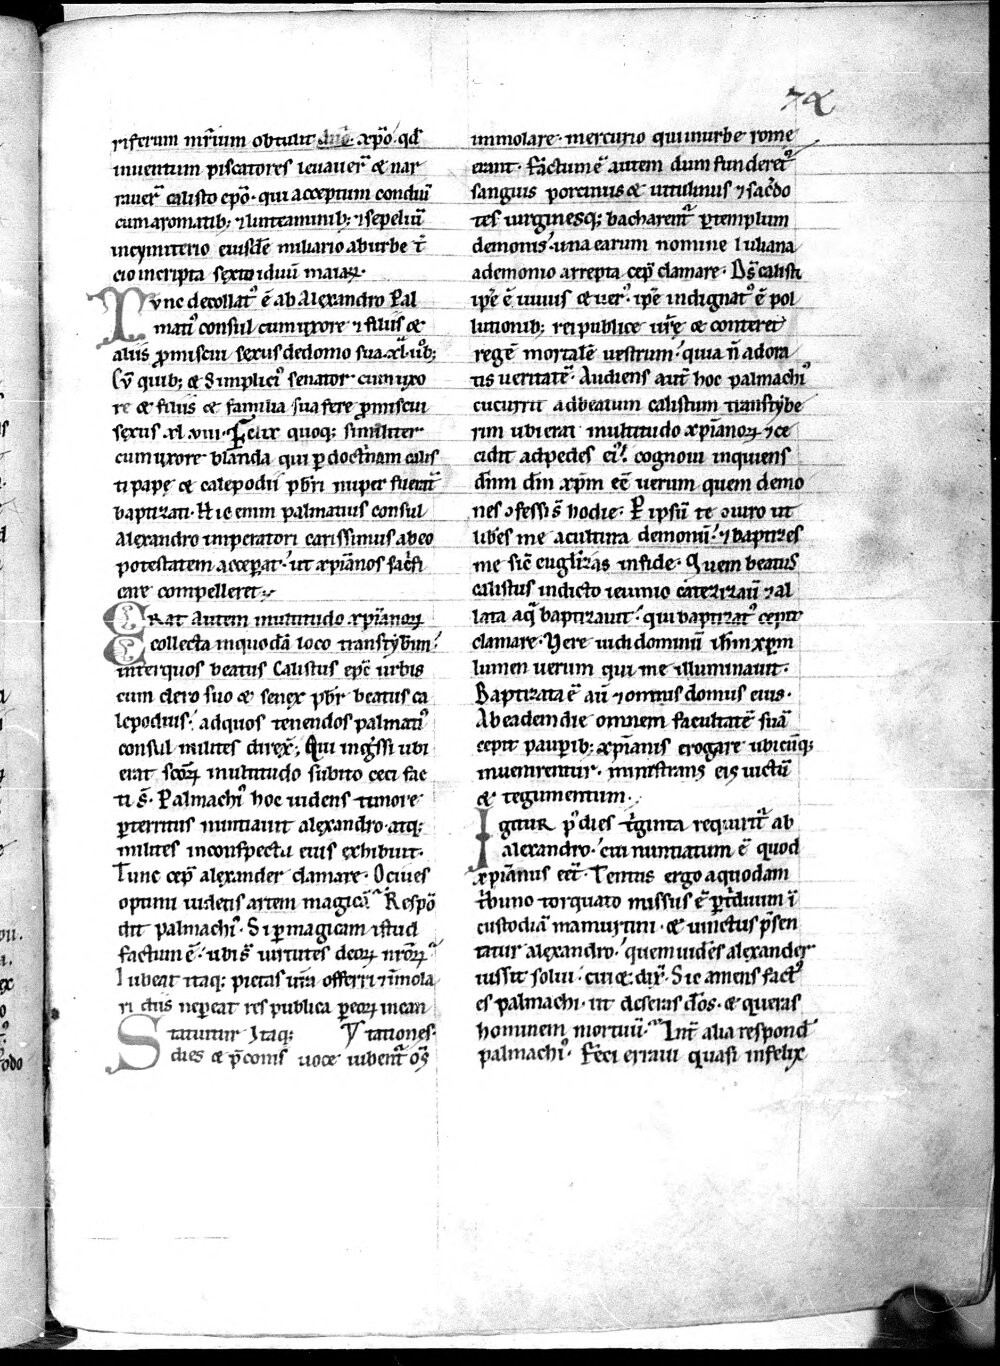 74
riferum mr̄ium obtulit dn̄o xp̄o qd̓
inuentum piscatores leuauer̄ & nar
rauer̄ calisto ep̄o. qui acceptum condiui᷑
cum aromatib; ⁊ lunteaminib; ⁊ sepeliui᷑
in cymiterio eiusdē miliario ab urbe t̄
cio in cripta sexto iduū maiaꝝ.
Tvnc decollatꝰ ē ab Alexandro Pal
matiꝰ consul cum uxore ⁊ filiis &
aliis ꝓmiscui sexus de domo sua. xl. ii̓b;
Cū quib; & Simpliciꝰ senator cum uxo
re & filiis & familia sua fere ꝓmiscui
sexus .xl.viii. Felix quoq; similiter
cum uxore blanda qui ꝑ doctnam calis
ti papę & calepodii pb̄ri nuper fuerant̄
baptizati. Hic enim palmatius consul
Alexandro imperatori carissimus ab eo
potestatem acceperat. ut xp̄ianos sacrifi
care compelleret.
ERat Autem multitudo xp̄ianoꝝ
collecta in quodā loco transtybim̄.
inter quos beatus Calistus ep̄c urbis
cum clero suo & senex pb̄r beatus ca
lepodius. ad quos tenendos palmatiꝰ
consul milites direx̄. Qui ingssi ubi
erat scōꝝ multitudo subito ceci fac
ti s̄. Palmachiꝰ hoc uidens timore
ꝑterritus nuntiauit alexandro. atq;
milites in conspectu eius exhibuit.
Tunc cep̄ alexander clamare. O ciues
optimi uidetis artem magicā. Respō
dit palmachiꝰ. Si per magicam istud
factum ē. ubi s̄ uirtutes deoꝝ nr̄oꝝ.
Iubeat itaq; pietas ur̄a offerri ⁊ immola
ri diis ne pereat res publica ꝑ eoꝝ incan
Statuitur Itaq; tationes.
dies & p̄conis uoce iubent̄ om̄s
immolare. mercurio qui in urbe rome
erant. Factum ē autem dum funderet̄
sanguis porcinus & uitulinus ⁊ sacdo
tes uirginesq; bacharent̄ ꝑ templum
demonis. una earum nomine Iuliana
a demonio arrepta cep̄ clamare. Ds̄ calisti
ipse ē uiuus & uerꝰ. ipse indignatꝰ ē pol
lutionib; rei publice ur̄ę & conteret
regē mortalē uestrum. quia n̄ adora
tis ueritatē. Audiens aut̄ hoc palmachiꝰ
cucurrit ad beatum calistum transtybe
rim ubi erat multitudo xp̄ianoꝝ ⁊ ce
cidit ad pedes eiꝰ. cognoui inquiens
dn̄m dm̄ xp̄m eē uerum quem demo
nes ↄfessi s̄ hodie. P ipsū te ↄiuro ut
libēs me a cultura demonū. ⁊ baptizes
me sic̄ euglizas in fide. Quem beatus
calistus indicto ieiunio catezizauit ⁊ al
lata aq̄ baptizauit. qui baptizatꝰ cepit
clamare. Uere uidi dominū ih̄m xp̄m
lumen uerum qui me illuminauit.
Baptizata ē aū ⁊ omnis domus eius.
Ab eadem die omnem facultatē suā
cepit pauperib; xp̄ianis erogare ubicūq;
inuenirentur. ministrans eis uictū
& tegumentum.
Igitur p̓ dies tginta requirit̄ ab
alexandro. cui nuntiatum ē quod
xp̄ianus eēt. Tentus ergo a quodam
tbuno torquato missus ē ꝑ tduum ī
custodiā mamurtini. & uinctus p̄sen
tatur alexandro. quem uidēs alexander
iussit solui. cui &. dix̄. Sic amens factꝰ
es palmachi. ut deseras dōs. & queras
hominem mortuū. Int̄ alia respond
palmachiꝰ. Feci erraui quasi infelix